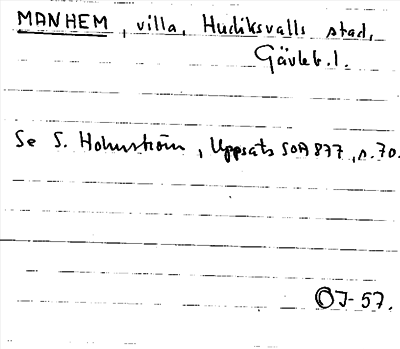 MANHEM, villa, Hudiksvalls stad,
Gävleb. l.
Se S. Holmström, Uppsats SOA 877, s. 70.
OJ-57.